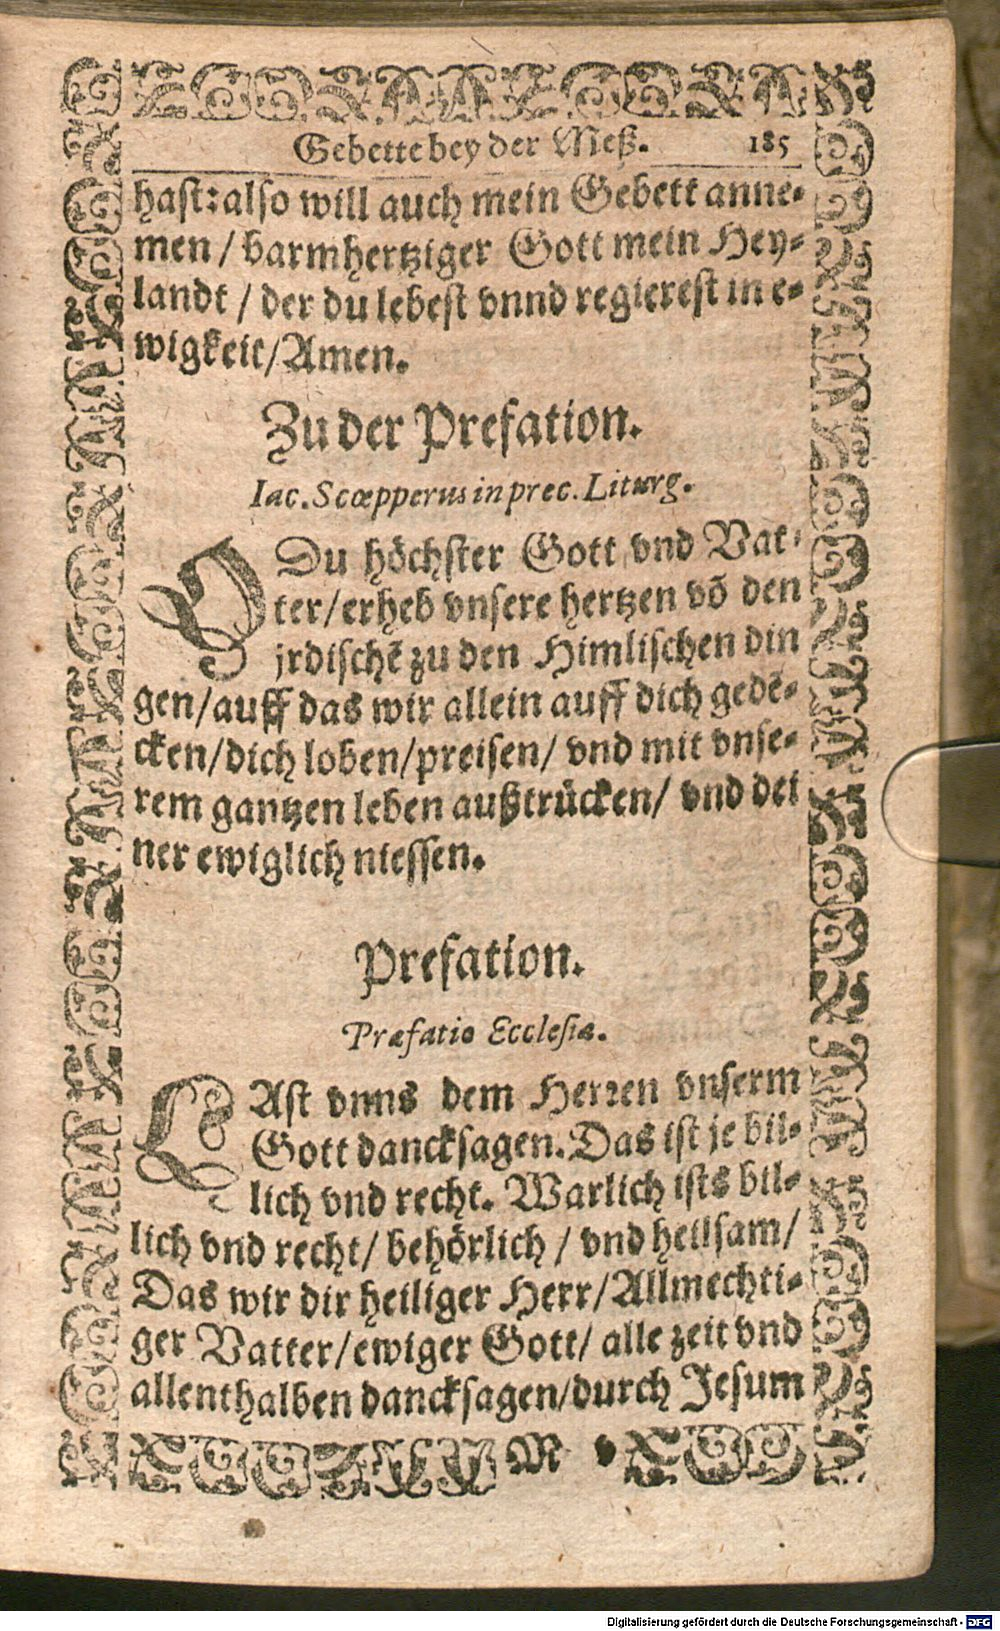 Gebette bey der Meß. 185
hast: also will auch mein Gebett anne-
men / barmhertziger Gott mein Hey-
landt / der du lebest vnnd regierest in e-
wigkeit/Amen.
Zu der Prefation.
Iac. Scœpperus in prec. Liturg.
O Du höchster Gott vnd Vat-
ter/erheb vnsere hertzen võ den
jrdischẽ zu den Himlischen din
gen/auff das wir allein auff dich gedẽ-
cken/dich loben/preisen/ vnd mit vnse-
rem gantzen leben außtrücken/ vnd dei
ner ewiglich niessen.
Prefation.
Præfatio Ecclesiæ.
LAst vnns dem Herren vnserm
Gott dancksagen. Das ist je bil-
lich vnd recht. Warlich ists bil-
lich vnd recht/ behörlich / vnd heilsam/
Das wir dir heiliger Herr/Allmechti-
ger Vatter/ewiger Gott/ alle zeit vnd
allenthalben dancksagen/durch Jesum
M
Digitalisierung gefördert durch die Deutsche Forschungsgemeinschaft - DFG